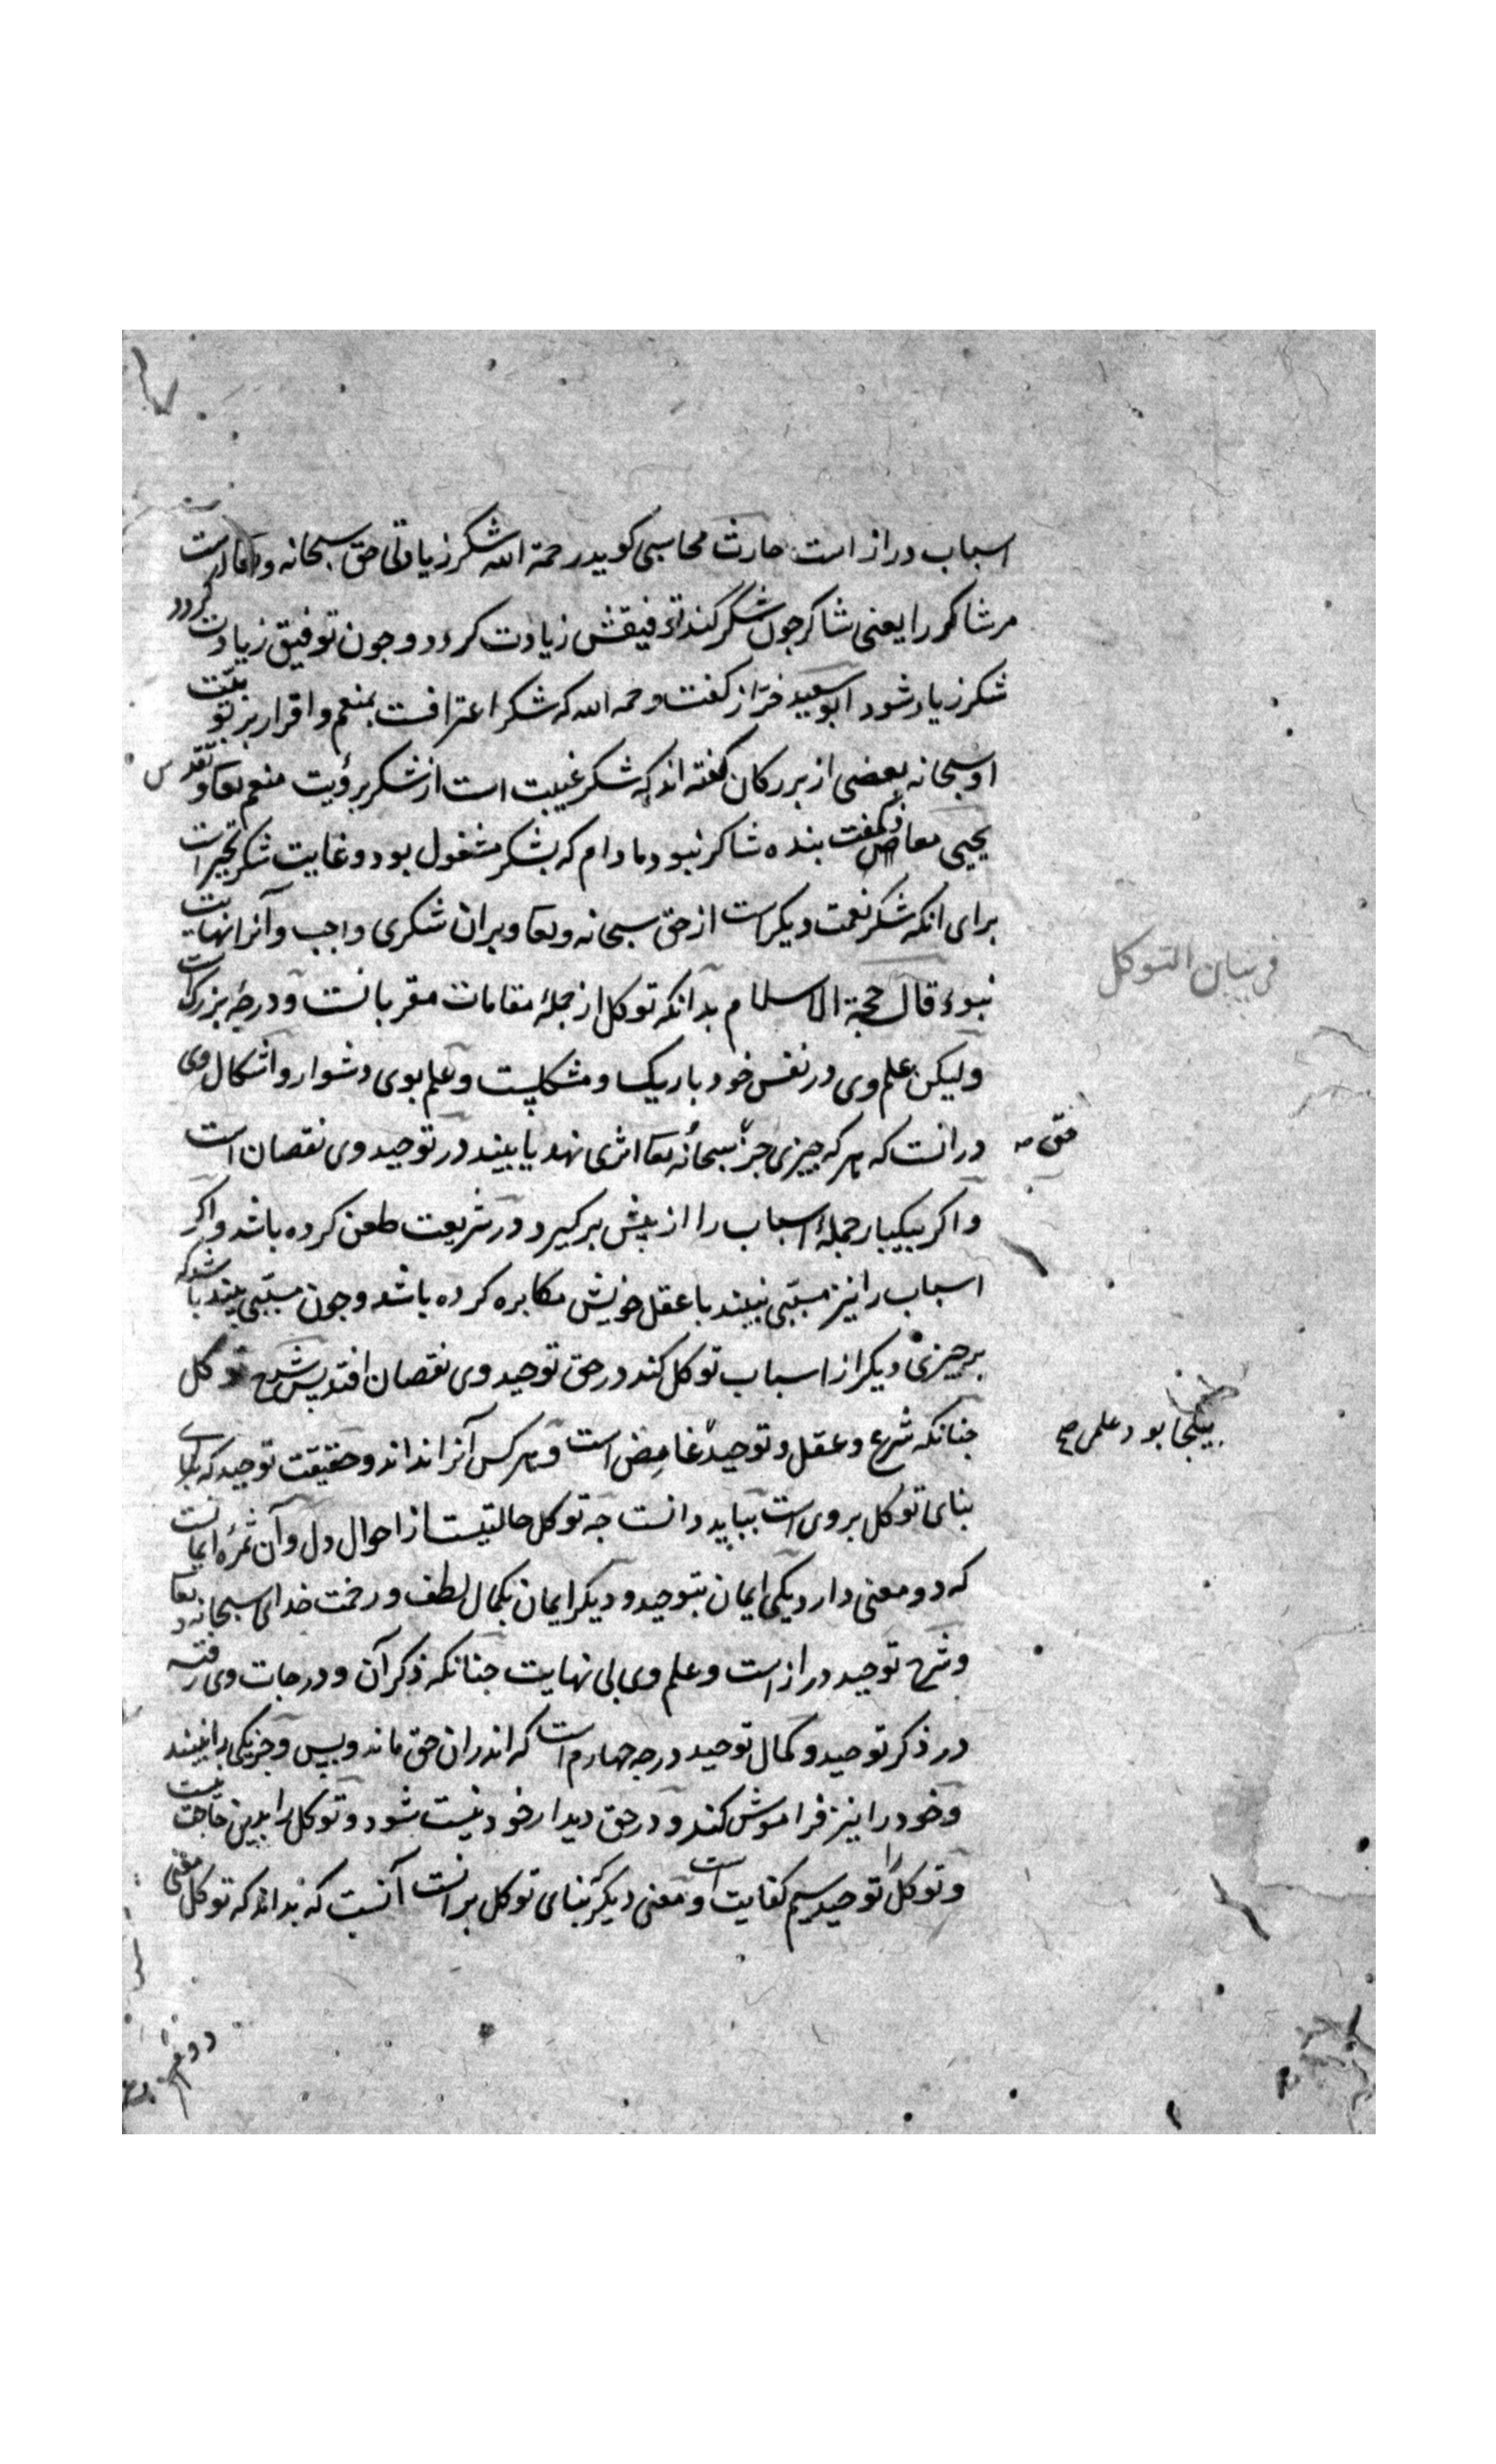 اسباب دراز است حارث محاسبی کوید رحمة الله شکر زیادتی حق سبحانه و تعالی است
مر شاکر را یعنی شاکر جون شکر کند توفیقش زیادت کردد و جون توفیق زیادت کردد
شکر زیاد شود ابو سعید خراز کفت رحمه الله که شکر اعترافست بمنعم و اقرار بربوبیت
او سبحانه بعضی از بزرکان کفته اند که شکر غیبت است از شکر برؤیت منعم تعا و تقدس
یحیی معاذ کفت بنده شاکر نبود ما دام که بشکر مشغول بود و غایت شکر تحیر است
برای انکه شکر نعمت دیکر است از حق سبحانه و تعا و بران شکری واجب و آنرا نهایت
نبود قال حجة الاسلام بدانکه توکل از جملۀ مقامات مقربانست و درجۀ بزرکست
فی بیان التوکل
ولیکن علم وی در نفس خود باریک و مشکلیست و علم بوی دشوار و اشکال وی
در انست که هر که جیزی جز سبحانه تعا اثری نهد یا بیند در توحید وی نقصان است
حق صه
و اکر بیکبار جملۀ اسباب را از پیش برکیرد در شریعت طعن کرده باشد و اکر
اسباب را نیز مسببی نبیند با عقل خویش مکابره کرده باشد و جون مسببی بیند باشد که
بر جیزی دیکر از اسباب توکل کند در حق توحید وی نقصان افتد پس شرح توکل
جنانکه شرع و عقل و توحید غامض است و هر کس آنرا نداند و حقیقت توحید که
بیکجا بود علمی صح
بنای توکل بر وی است بباید دانست جه توکل حالتیست از احوال دل و آن ثمرۀ ایمانست
که دو معنی دارد یکی ایمان بتوحید و دیکر ایمان بکمال لطف و رحمت خدای سبحانه و تعا
و شرح توحید دراز است و علم وی بی نهایت جنانکه ذکر آن و درجات وی رفته
در ذکر توحید و کمال توحید درجه جهارم است که اندران حق ماند و بس و جز یکی را نبیند
و خود را نیز فراموش کند و در حق دیدار خود نیست شود و توکل را بدین حاجت نیست
و توکل را توحید سیم کفایت است و معنی دیکر بنای توکل بر انست آنست که بداند که توکل معنی